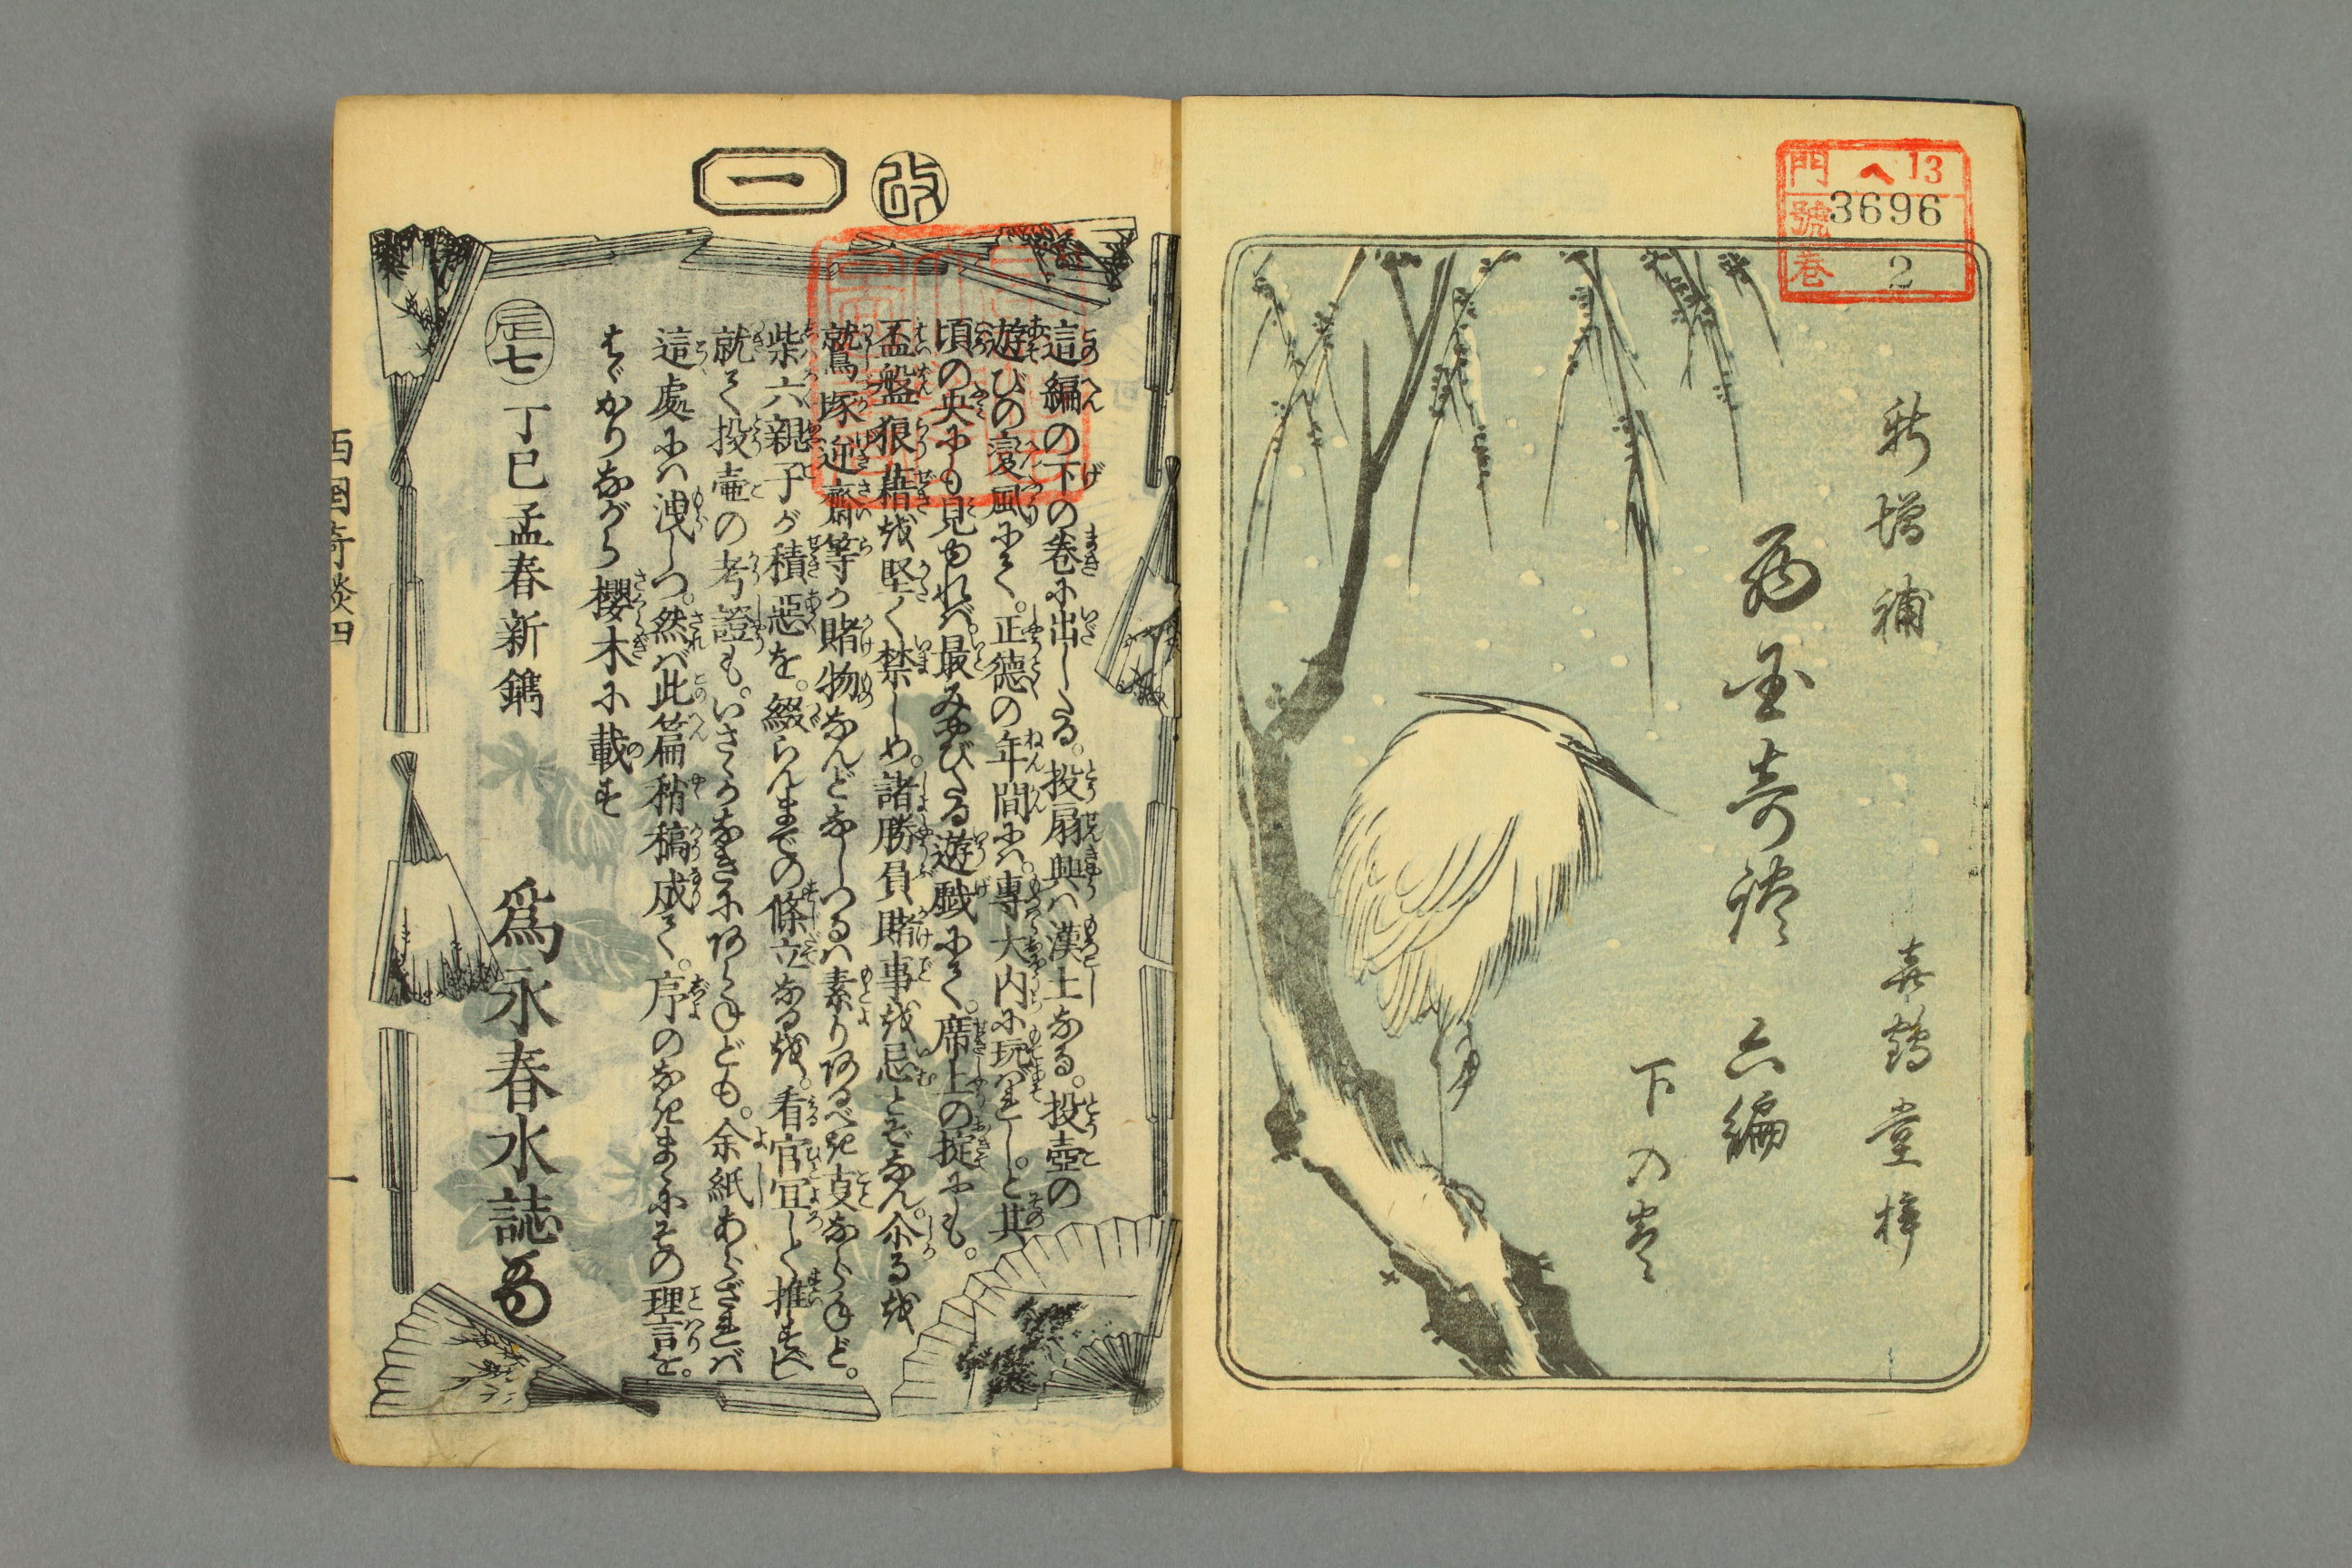 門 へ 13
號 3696
巻 2
新増補
西国奇談 六編
下の巻
喜鶴堂梓
改
一
這編の下の巻に出したる。投扇興ハ漢土なる。投壺の
遊びの変風にて。正徳の年間にハ。専大内に玩れしと。其
頃の央にも見ゆれバ。最みやびたる遊戯にて。席上の掟にも。
盃盤狼藉を堅く禁しめ。諸勝負賭事を忌とぞなん。尒るを
鷲塚迎齋等が賭物なんどなしつるハ素りあるべき支ならねど。
柴六親子が積悪を。綴らんまでの條立なるを。看官宜しく推すべし
就て投壷の考證も。いさゝかなきにあらねども。余紙あらざれバ
這處にハ洩しつ。然バ此篇稍稿成て。序のなきまゝにその理言を。
はゞかりながら櫻木に載す
正七 丁巳孟春新鐫
為永春水誌
西国奇談四
一